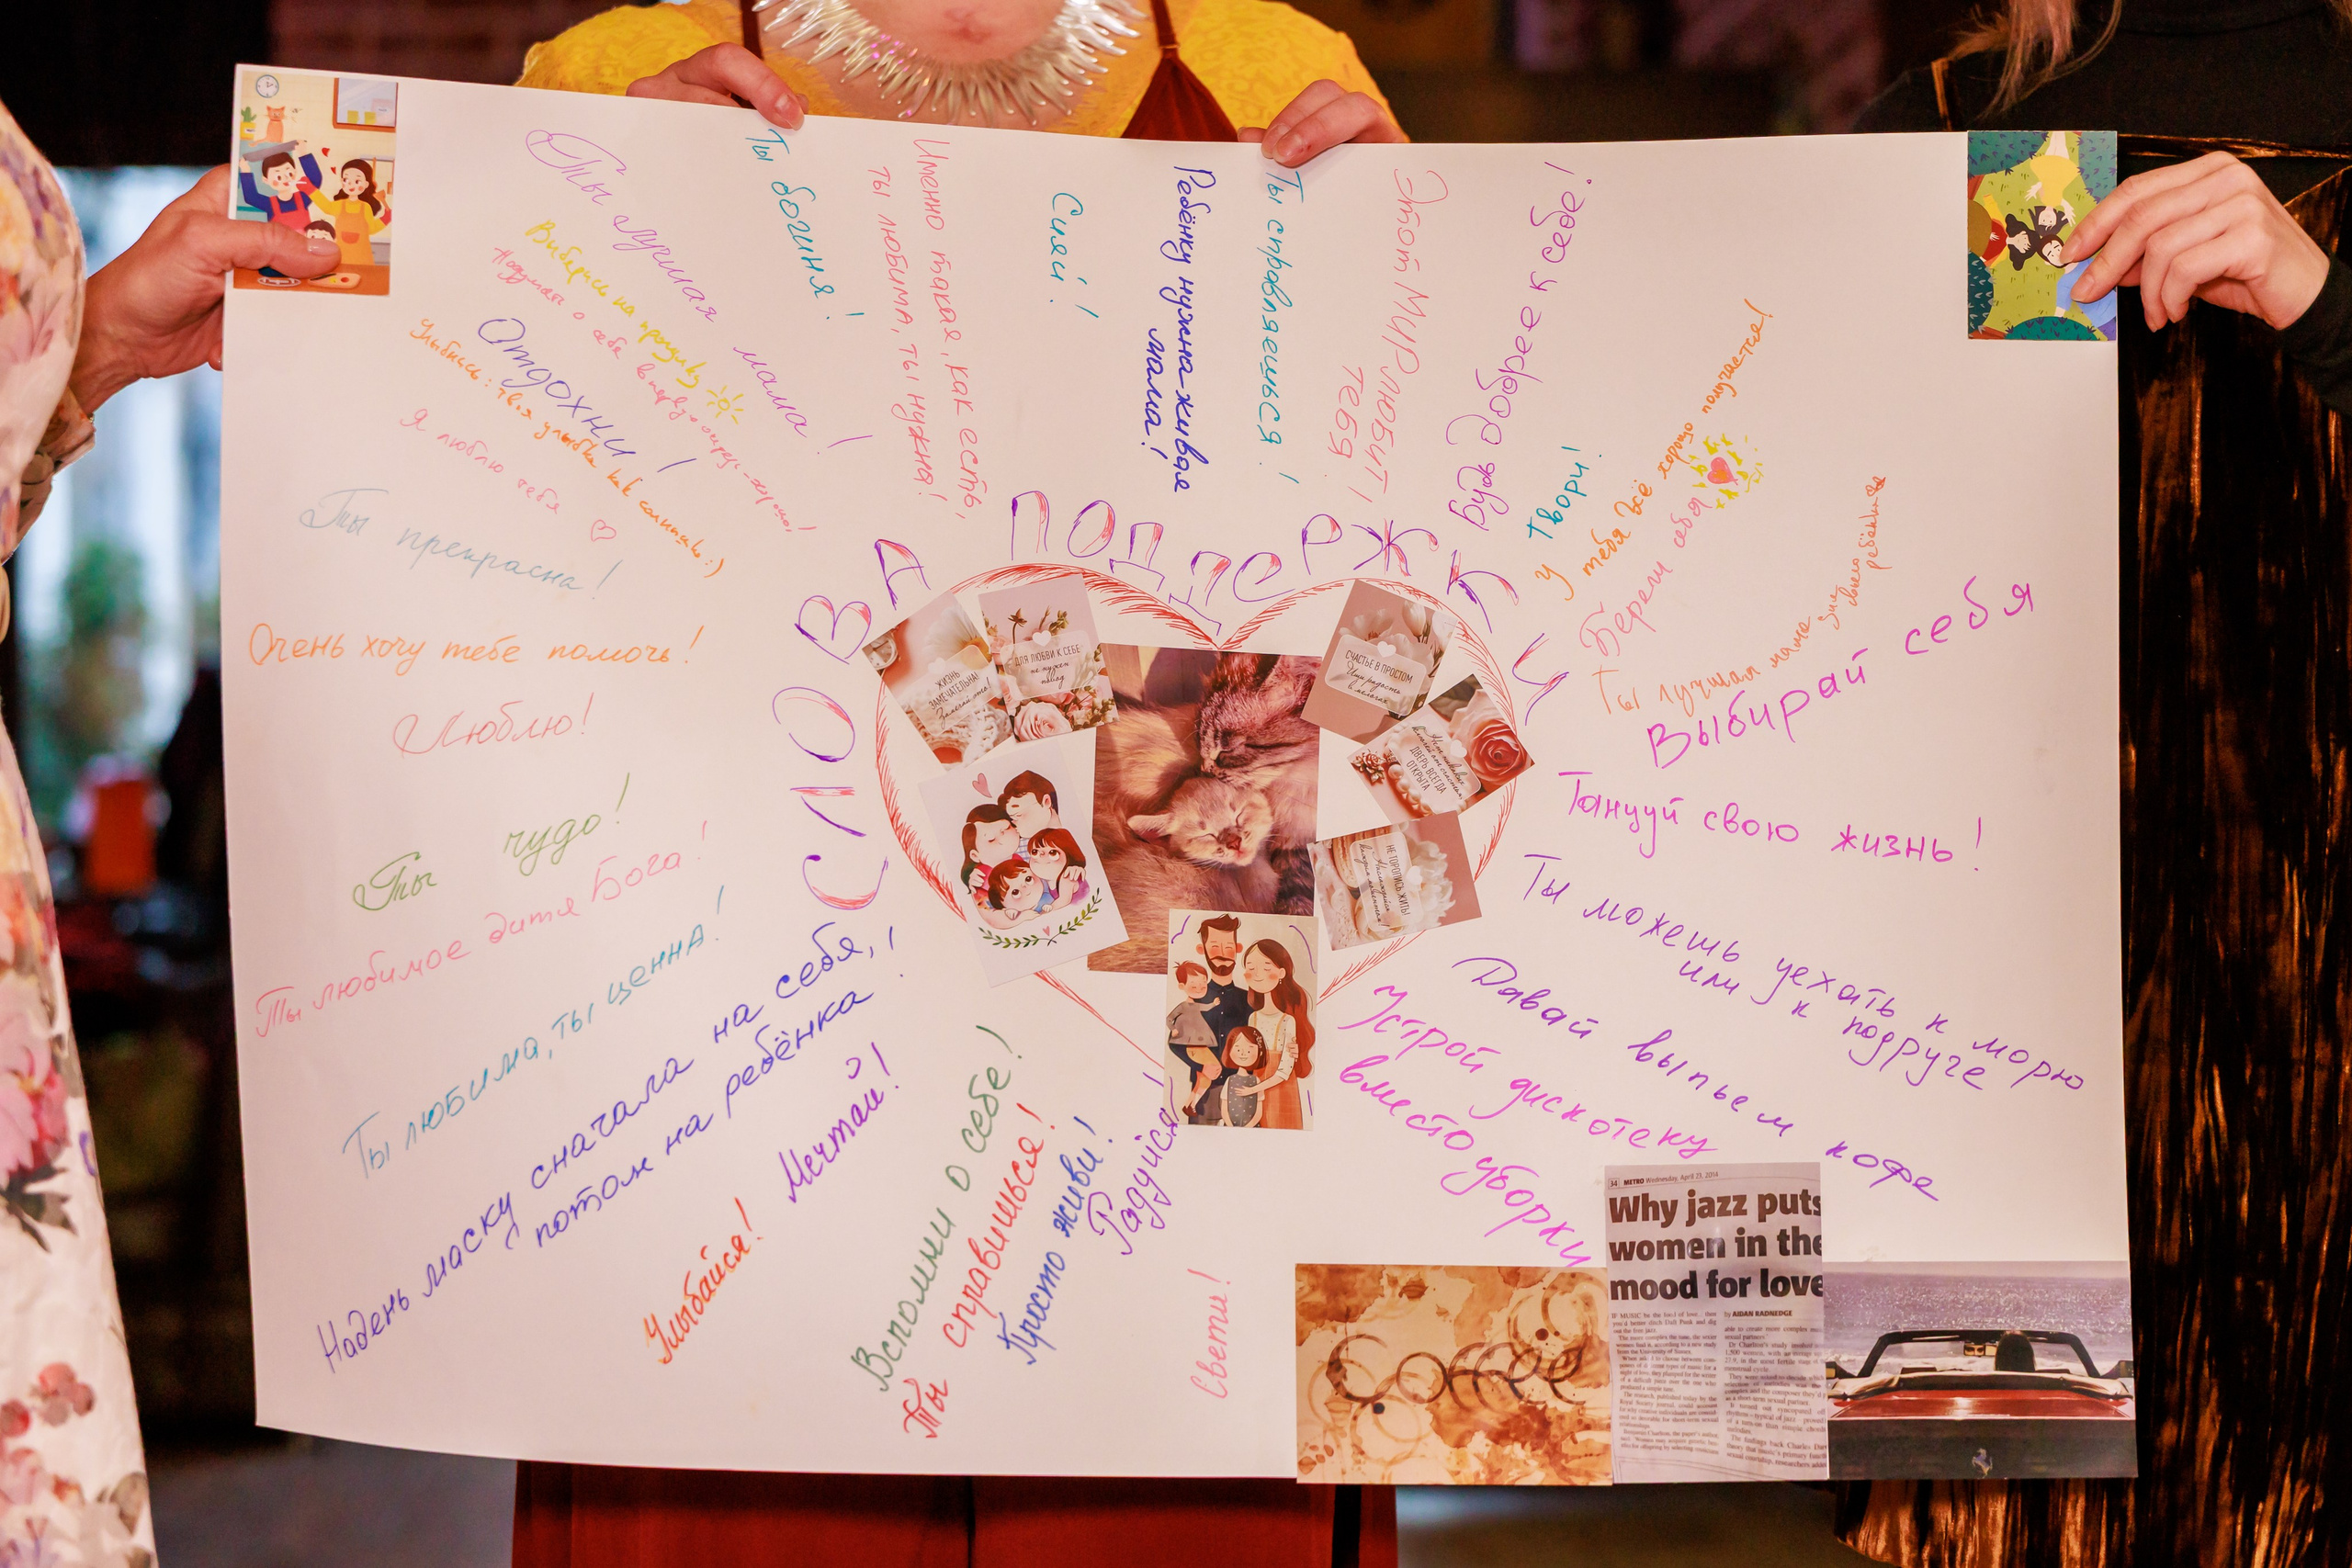 СЛОВА ПОДДЕРЖКИ
Ты лучшая мама!
Выберись на прогулку
Подумать о себе в первую очередь - хорошо!
Отдохни!
Улыбнись: твоя улыбка как солнышко :)
Я люблю тебя
Ты прекрасна!
Очень хочу тебе помочь!
Люблю!
Ты чудо!
Ты любимое дитя Бога!
Ты любима, ты ценна!
Надень маску сначала на себя,
а потом на ребёнка!
Улыбайся!
Мечтай!
Вспомни о себе!
Ты справишься!
Просто живи!
Радуйся!
Свети!
Ты богиня!
Именно такая, как есть,
ты любима, ты нужна!
Сияй!
Ребёнку нужна живая
мама!
Ты справляешься!
Этот Мир любит
тебя!
Будь добрее к себе!
Твори!
У тебя всё хорошо получается!
Береги себя
Ты лучшая мама для
своего
ребёнка
Выбирай себя
Танцуй свою жизнь!
Ты можешь уехать к морю
или к подруге
Давай выпьем кофе
Устрой дискотеку
вместо уборки
ЖИЗНЬ
ЗАМЕЧАТЕЛЬНА!
Замечай это
ДЛЯ ЛЮБВИ К СЕБЕ
не нужен
повод
СЧАСТЬЕ В ПРОСТОМ
Ищи радость
в мелочах
ДВЕРЬ ВСЕГДА
ОТКРЫТА
НЕ ТОРОПИСЬ ЖИТЬ!
Наслаждайся
каждым моментом
coffee
34 METRO Wednesday, April 23, 2014
Why jazz puts
women in the
mood for love
by AIDAN RADNEDGE